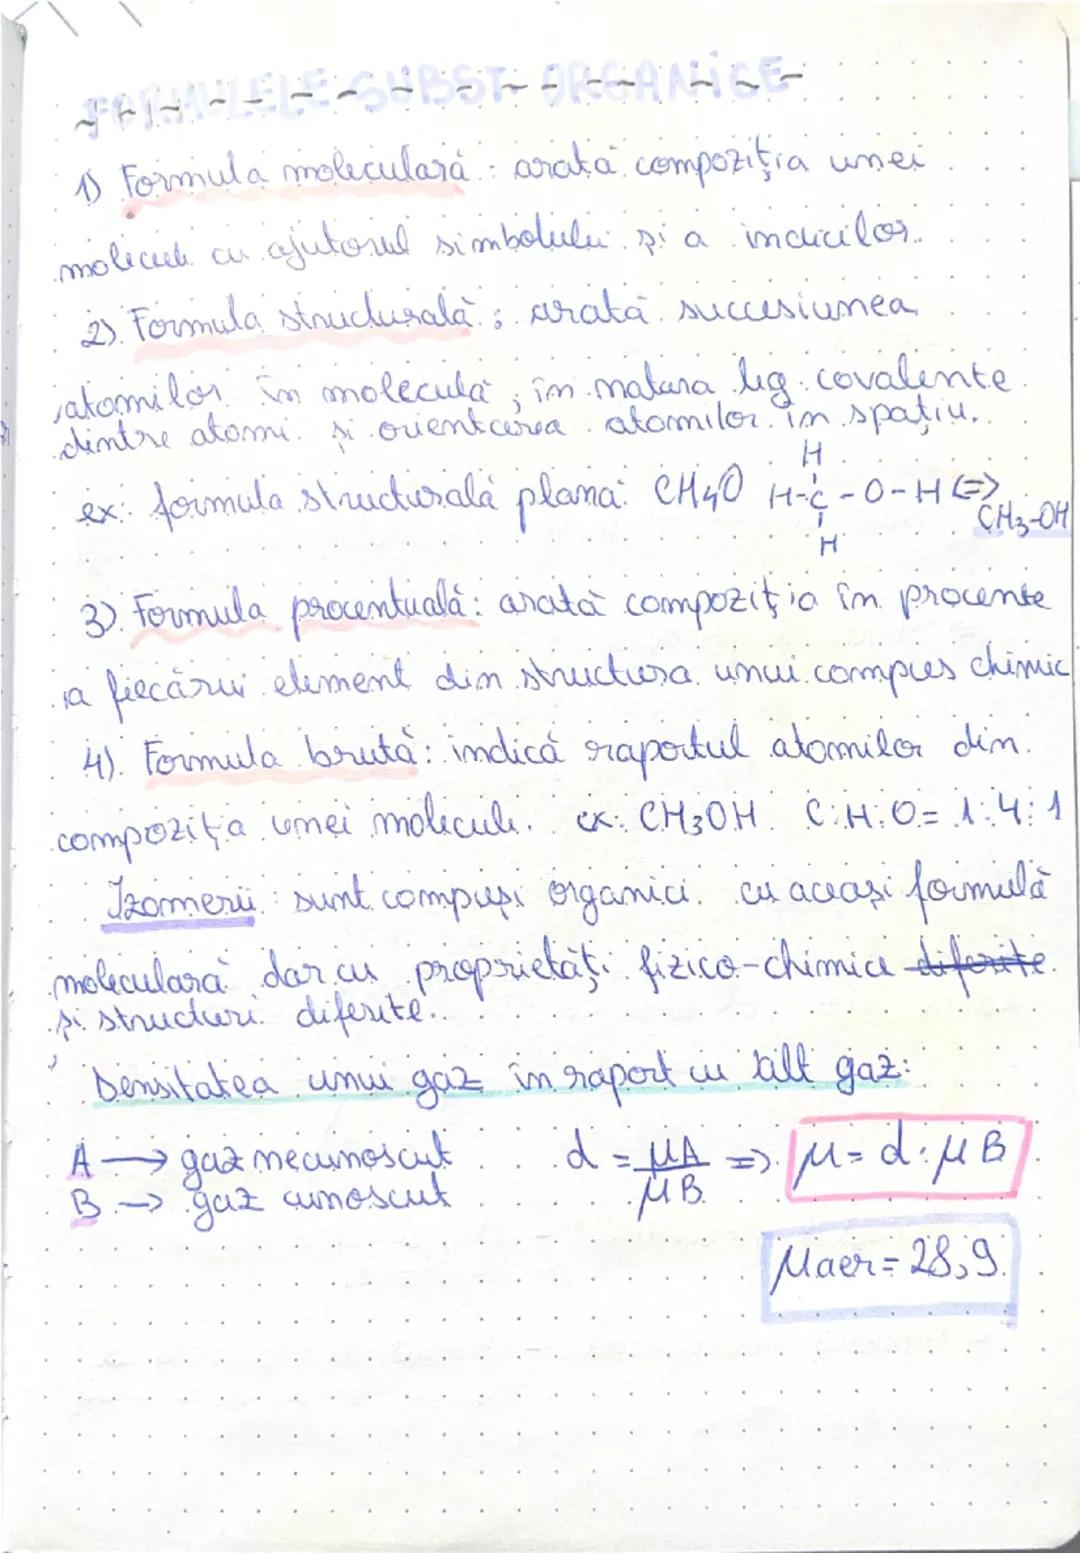 FORMULELE SUBST ORGANICE
1) Formula moleculară : arată compoziția unei
molecule cu ajutorul simbolului și a indicilor.
2). Formula structurală : arată succesiunea
atomilor în moleculă, în natura leg. covalente
dintre atomi și orientarea atomilor în spațiu.
H
ex: formula structurală plană: CH4O H-C-O-H <=>
CH3-OH
H
3). Formula procentuală: arată compoziția în procente
a fiecărui element din structura unui compus chimic
4). Formula brută: indică raportul atomilor din
compoziția unei molecule. ex: CH3OH C:H:O= 1:4:1
Izomerii : sunt compuși organici cu aceași formulă
moleculară dar cu proprietăți fizico-chimice diferite
și structuri diferite.
Densitatea unui gaz în raport cu alt gaz:
A → gaz necunoscut d = μA/μB => μ= d·μB
B → gaz cunoscut
μaer= 28,9